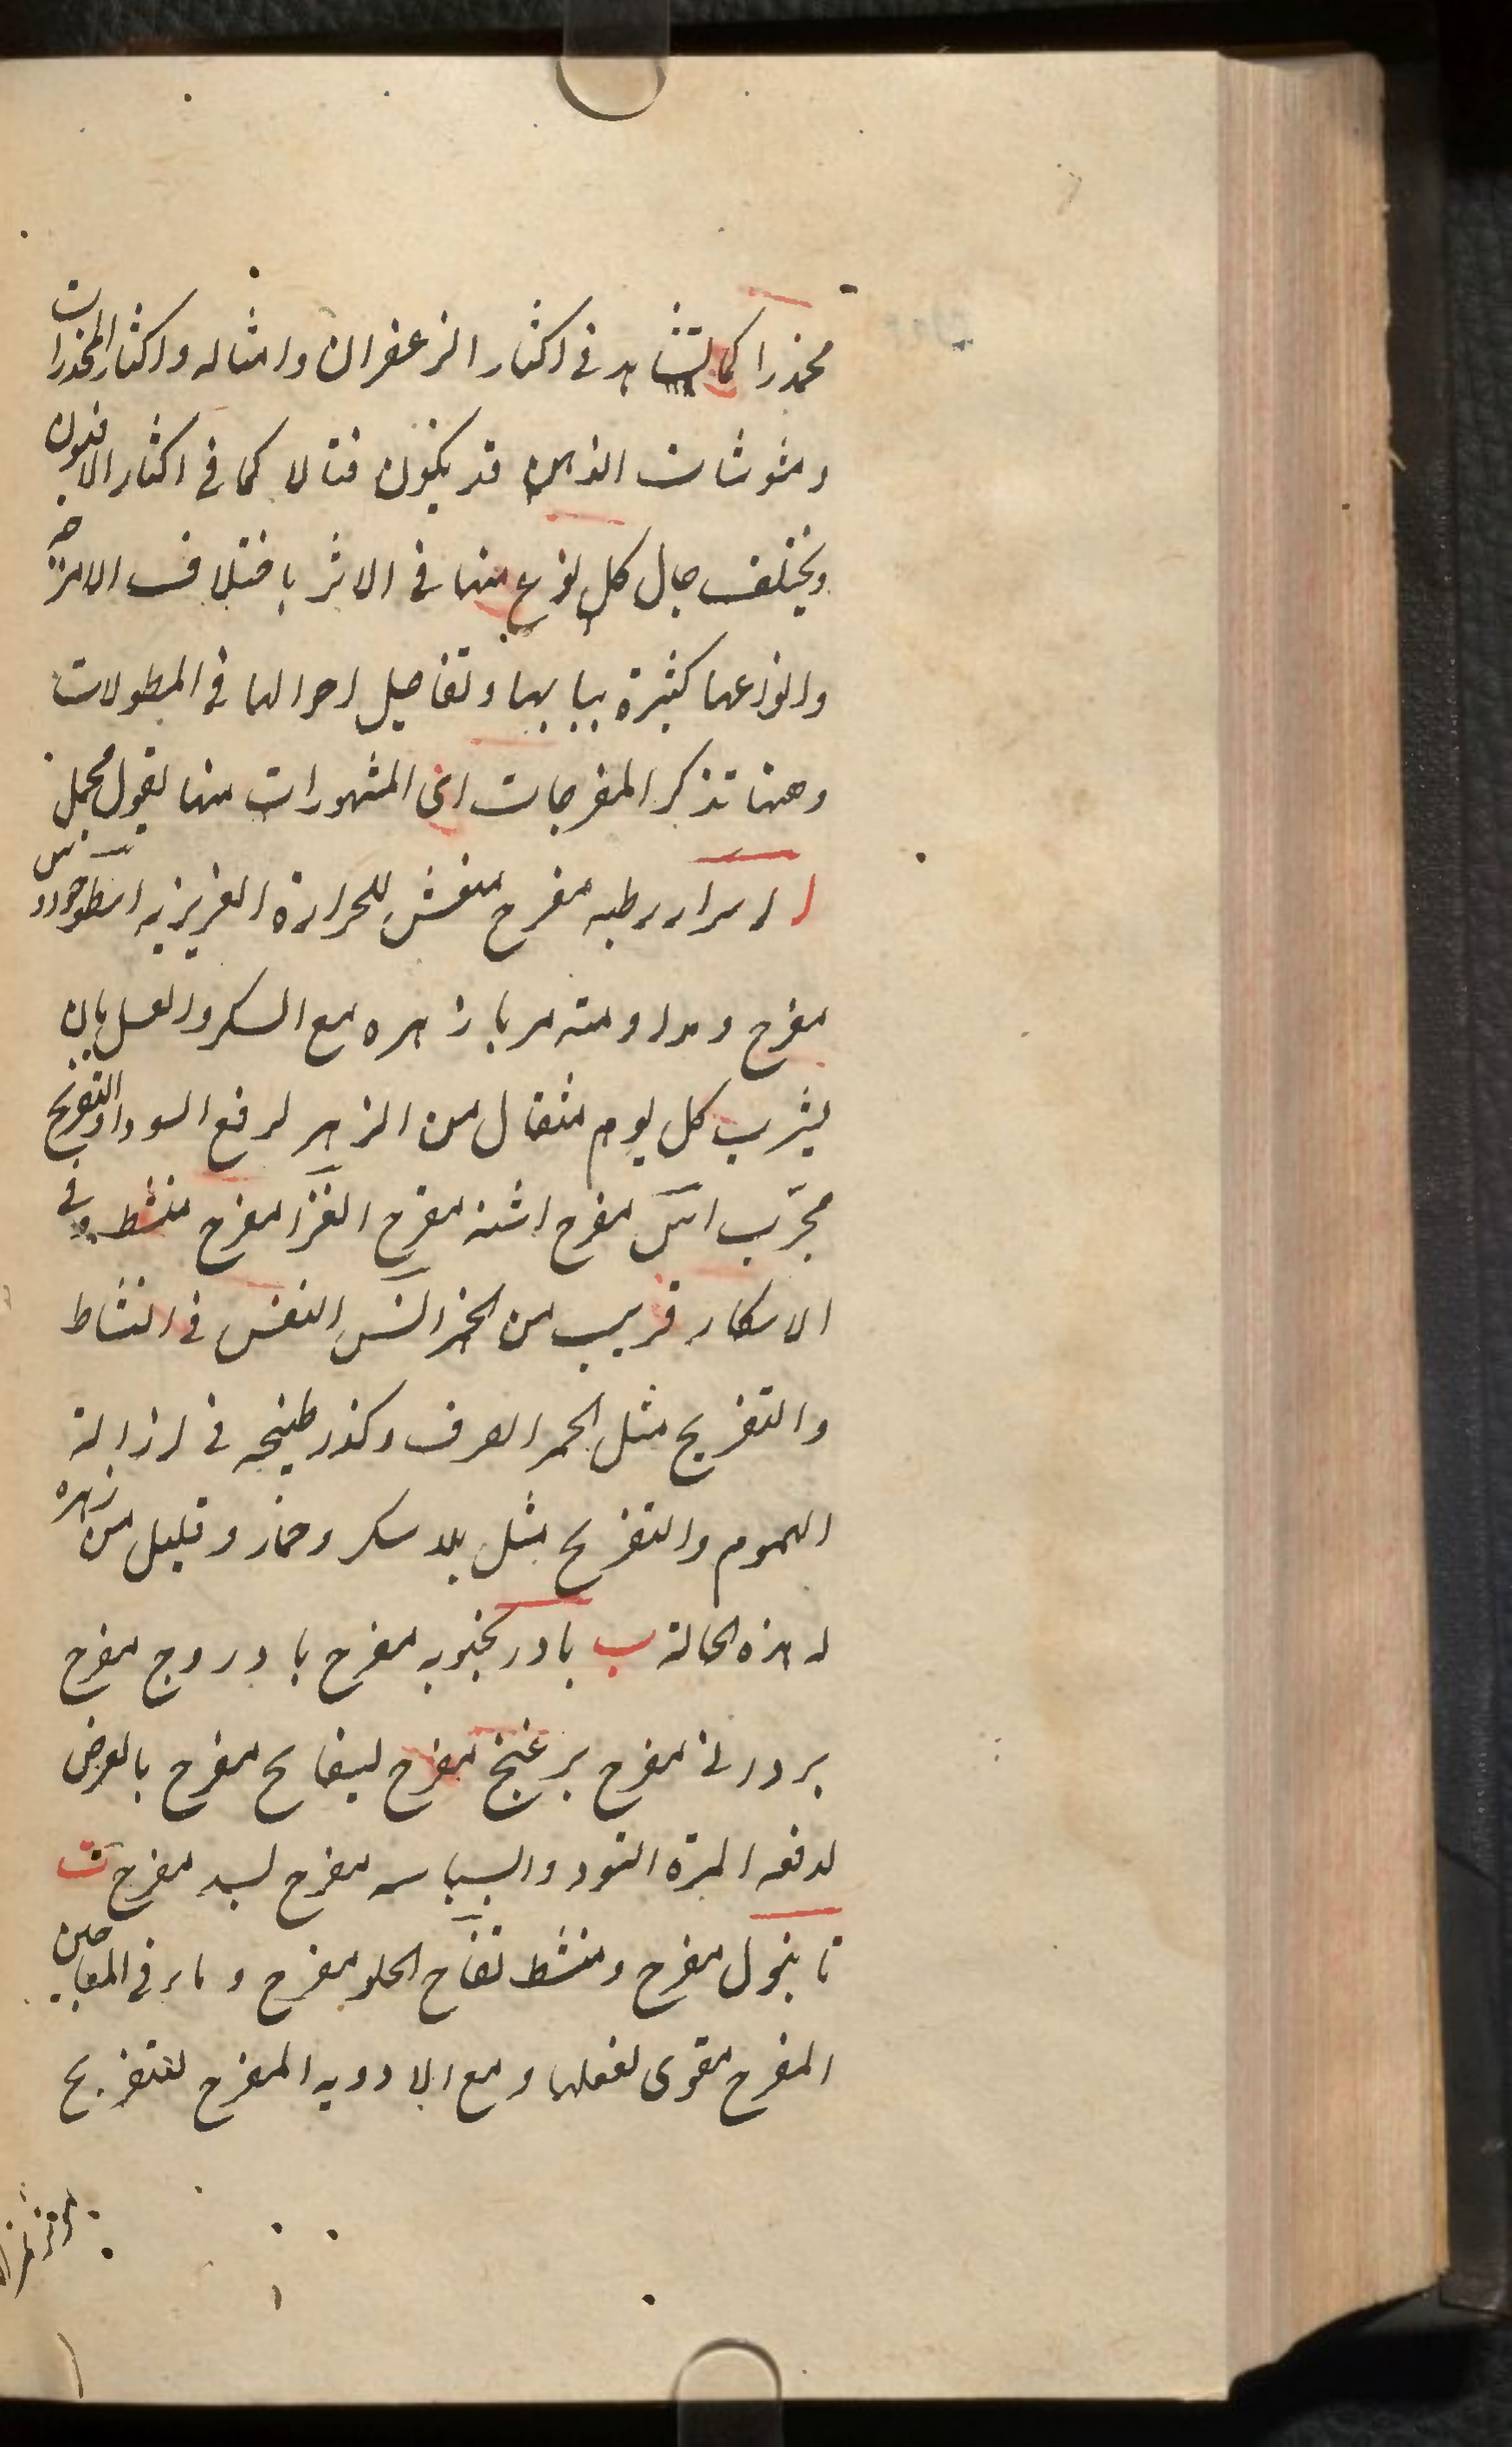 مخدرا كما تشاهد في اكثار الزعفران وامثاله واكثار المخدرات
ومشوشات الذهن قد يكون قتالا كما في اكثار الافيون
ويختلف حال كل نوع منها في الاثر باختلاف الامزجة
وانواعها كثيرة ببابها وتفاصيل احوالها في المطولات
وههنا تذكر المفرحات اى المشهورات منها بقول مجمل
ا رطبه مفرح منعش للحرارة الغريزيه اسطوخودوس
مفرح ومداومته مربا زهره مع السكر والعسل بان
يشرب كل يوم مثقال من الزهر لرفع السودا والتفريح
مجرّب اس مفرح اشنه مفرح مفرح منشط وفي
الاسكار قريب من الخمر النفس في النشاط
والتفريح مثل الخمر الصرف وكذر طبيخه في ازالة
الهموم والتفريح مثل بلا سكر وخمار وقليل من زهره
له هذه الحالة ب بادرنجبويه مفرح بادروج مفرح
مفرح برغنج مفرح مفرح بالعرض
لدفعه المرة السودا والبسباسه مفرح بسد مفرح ت
تانبول مفرح ومنشط تفاح الحلو مفرح و في المعاجين
المفرح مقوى لفعلها ومع الادويه المفرح للتفريح